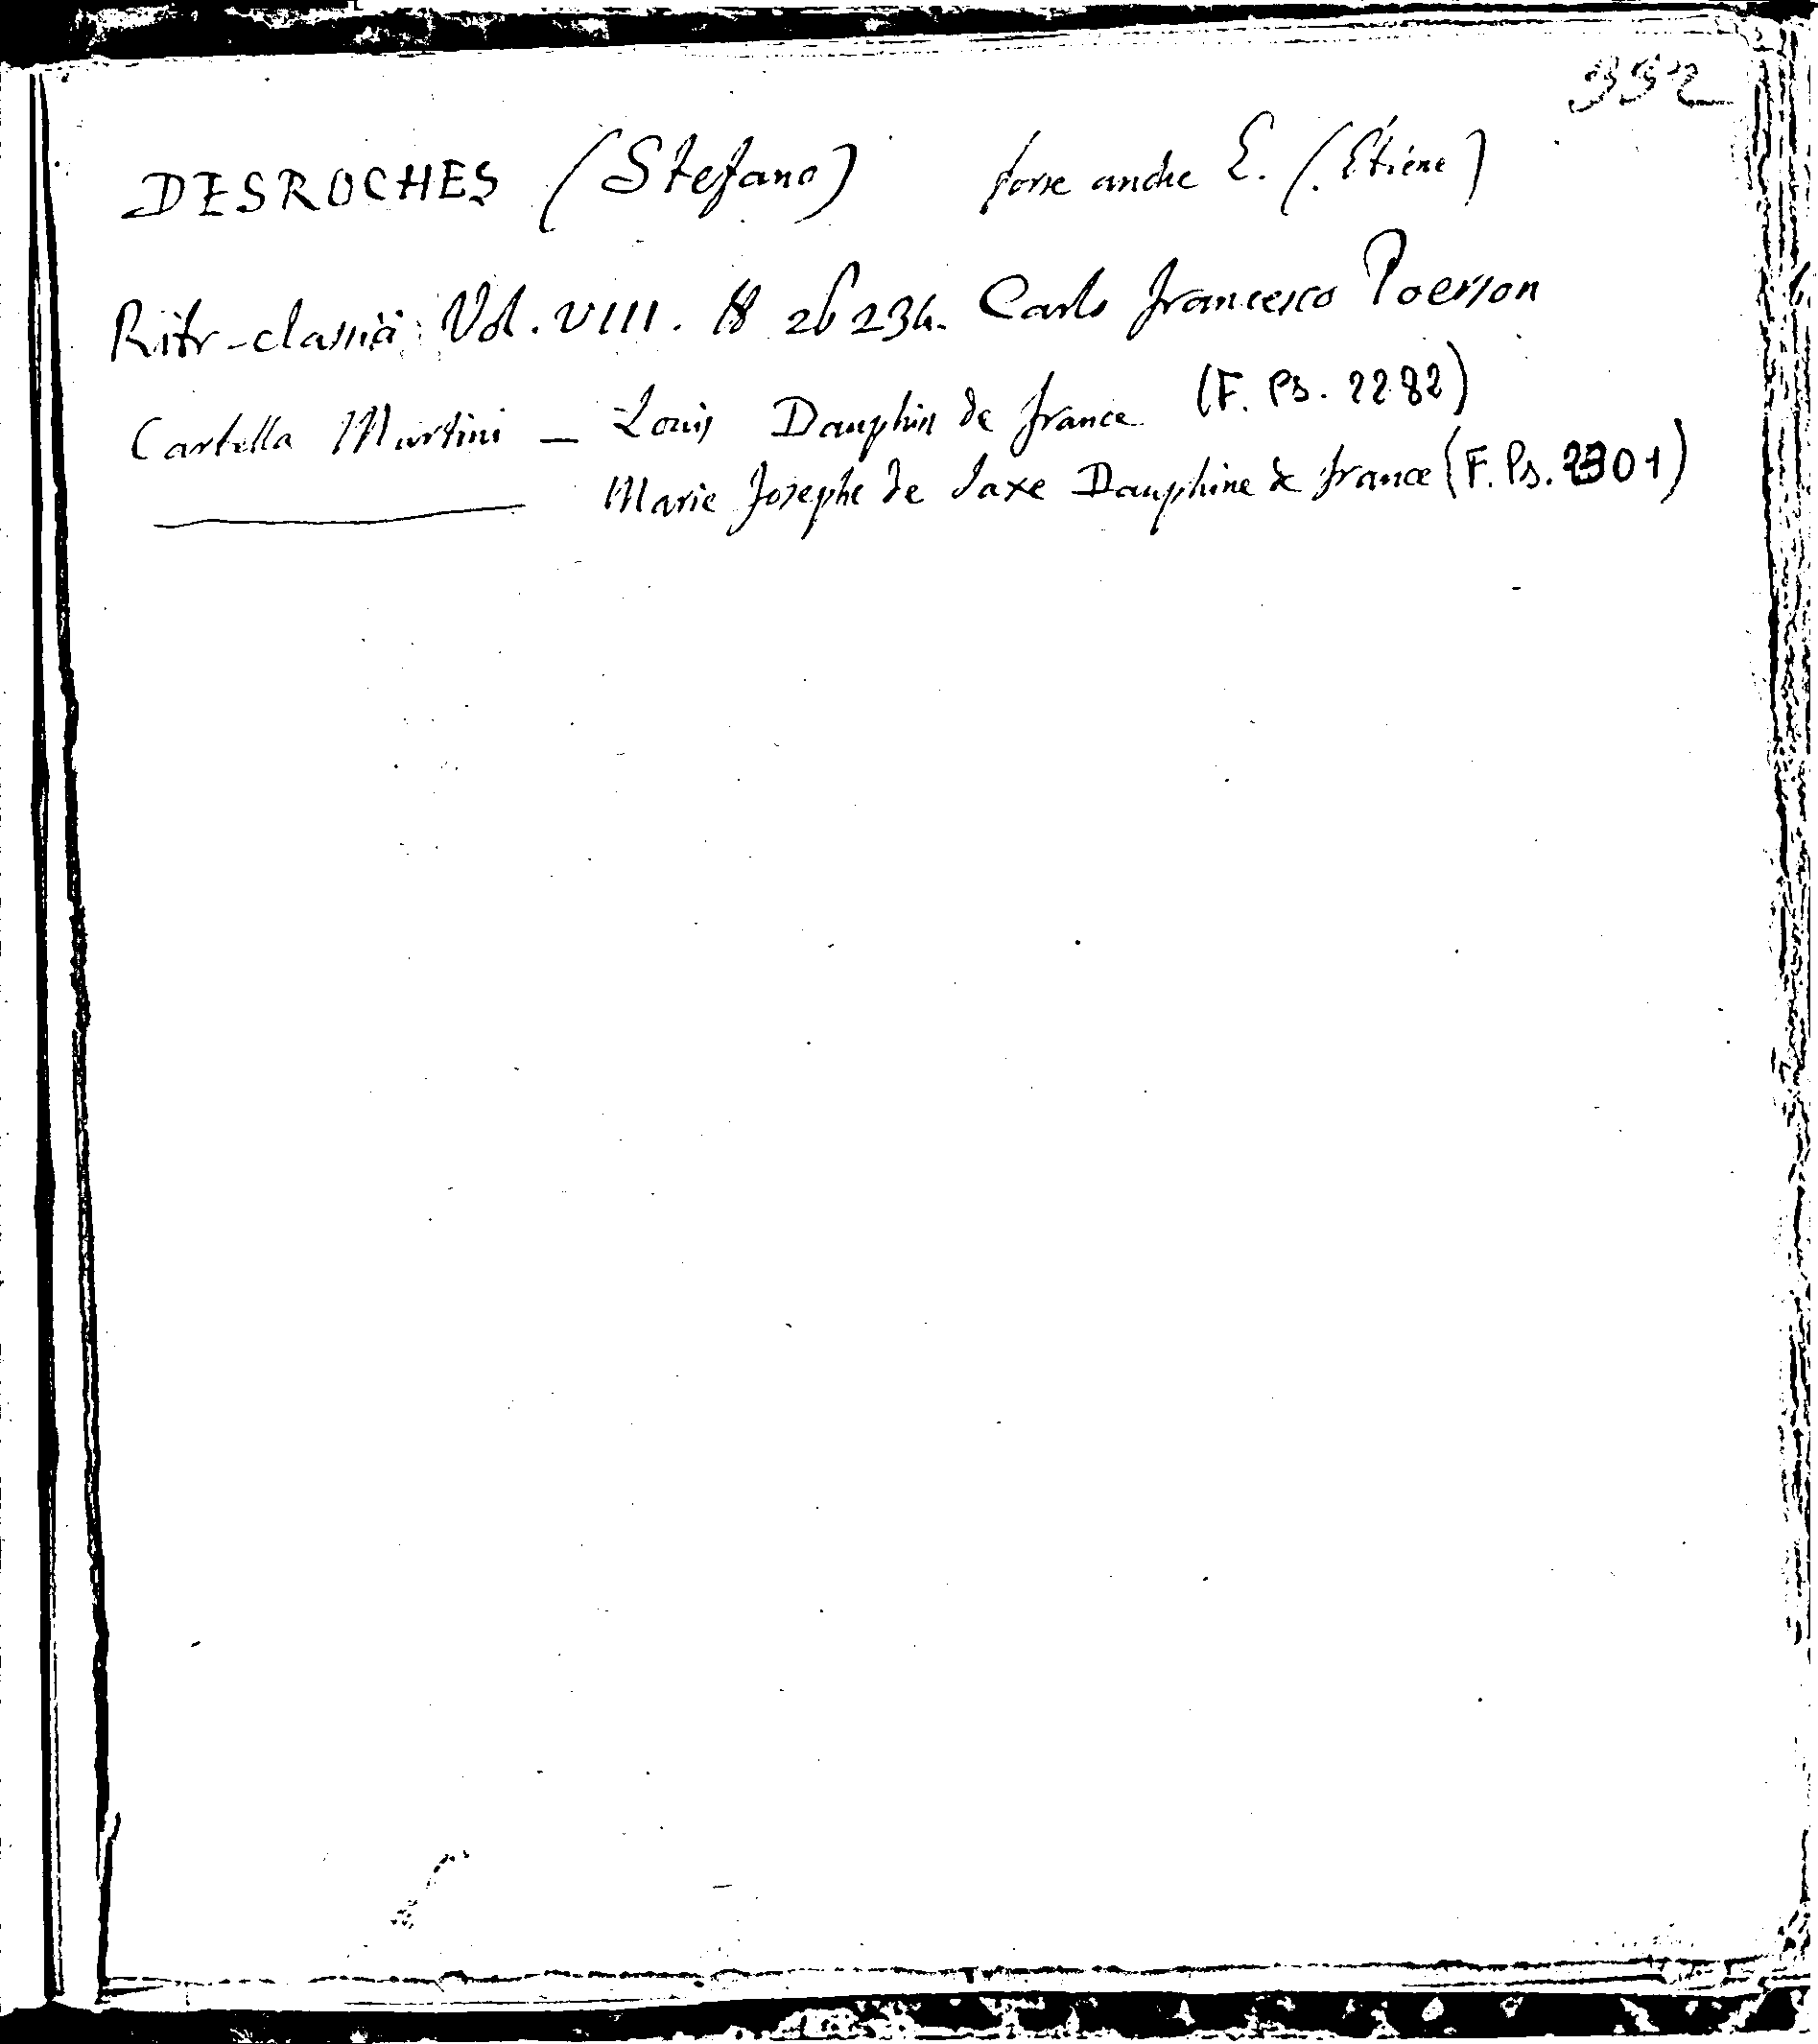 352
DESROCHES (Stefano) forse anche E. (Etiéne)
Ritr-classici Vol. VIII. 26234. Carlo francesco Poerson
Cartella Martini — Louis Dauphin de france (F. Ps. 2282)
Marie Josephe de Saxe Dauphine de france (F. Ps. 2301)